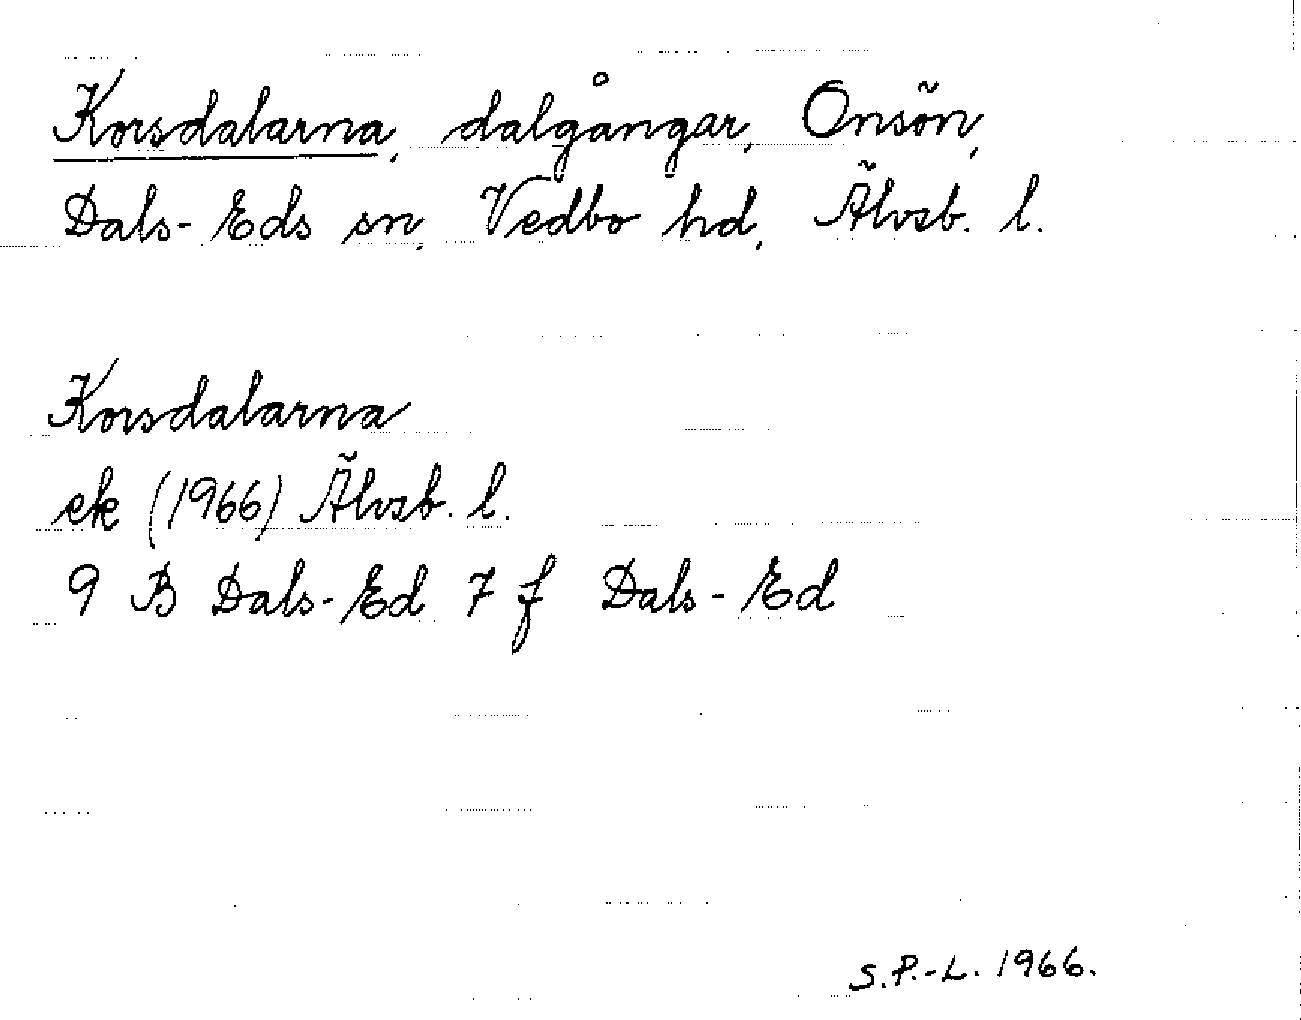 Korsdalarna, dalgångar, Onsön,
Dals-Eds sn, Vedbo hd, Älvsb. l.
Korsdalarna
ek (1966) Älvsb. l.
9 B Dals-Ed 7 f Dals-Ed
S.P.-L. 1966.